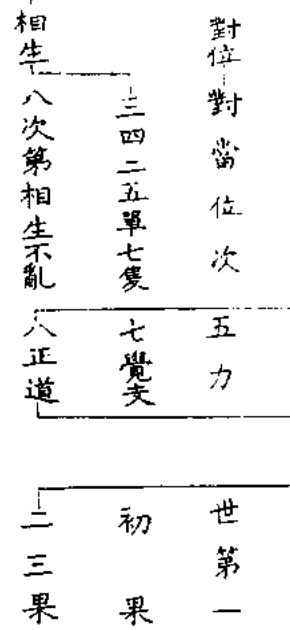 對位 對當位次 五力 世第一
三四二五單七隻 七覺支 初果
相生 八次第相生不亂 八正道 二三果